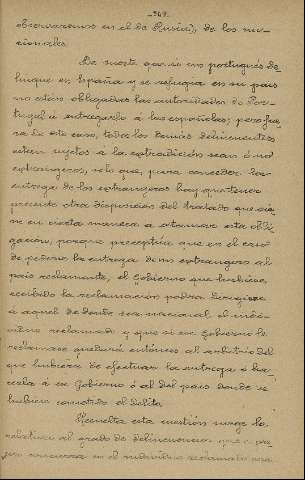 -369-
observaremos en el de Rusia), de los na-
cionales.
De suerte que si un portugués de-
linque en España y se refugia en su pais
no están obligadas las autoridades de Por-
tugal á entregarlo á las españolas; pero fue-
ra de este caso, todos los demás delincuentes
estan sujetos á la extradición sean ó no
extrangeros, solo que, para conceder la
entrega de los extrangeros hay que tener
presente otra disposición del tratado que vie-
ne en cierta manera a atenuar esta obli-
gación, porque preceptúa que en el caso
de pedirse la entrega de un extrangero al
pais reclamante, el Gobierno que hubiese
recibido la reclamación podrá dirigirse
á aquel de donde sea nacional el indi-
viduo reclamado y que si ese Gobierno le
reclamase quedará entonces al arbitrio del
que hubiere de efectuar la entrega ó ha-
cerla á su Gobierno ó al del pais donde se
hubiere cometido el delito.
Resuelta esta cuestión surge la
relativa al grado de delincuencia que es pre-
ciso concurra en el individuo reclamado para